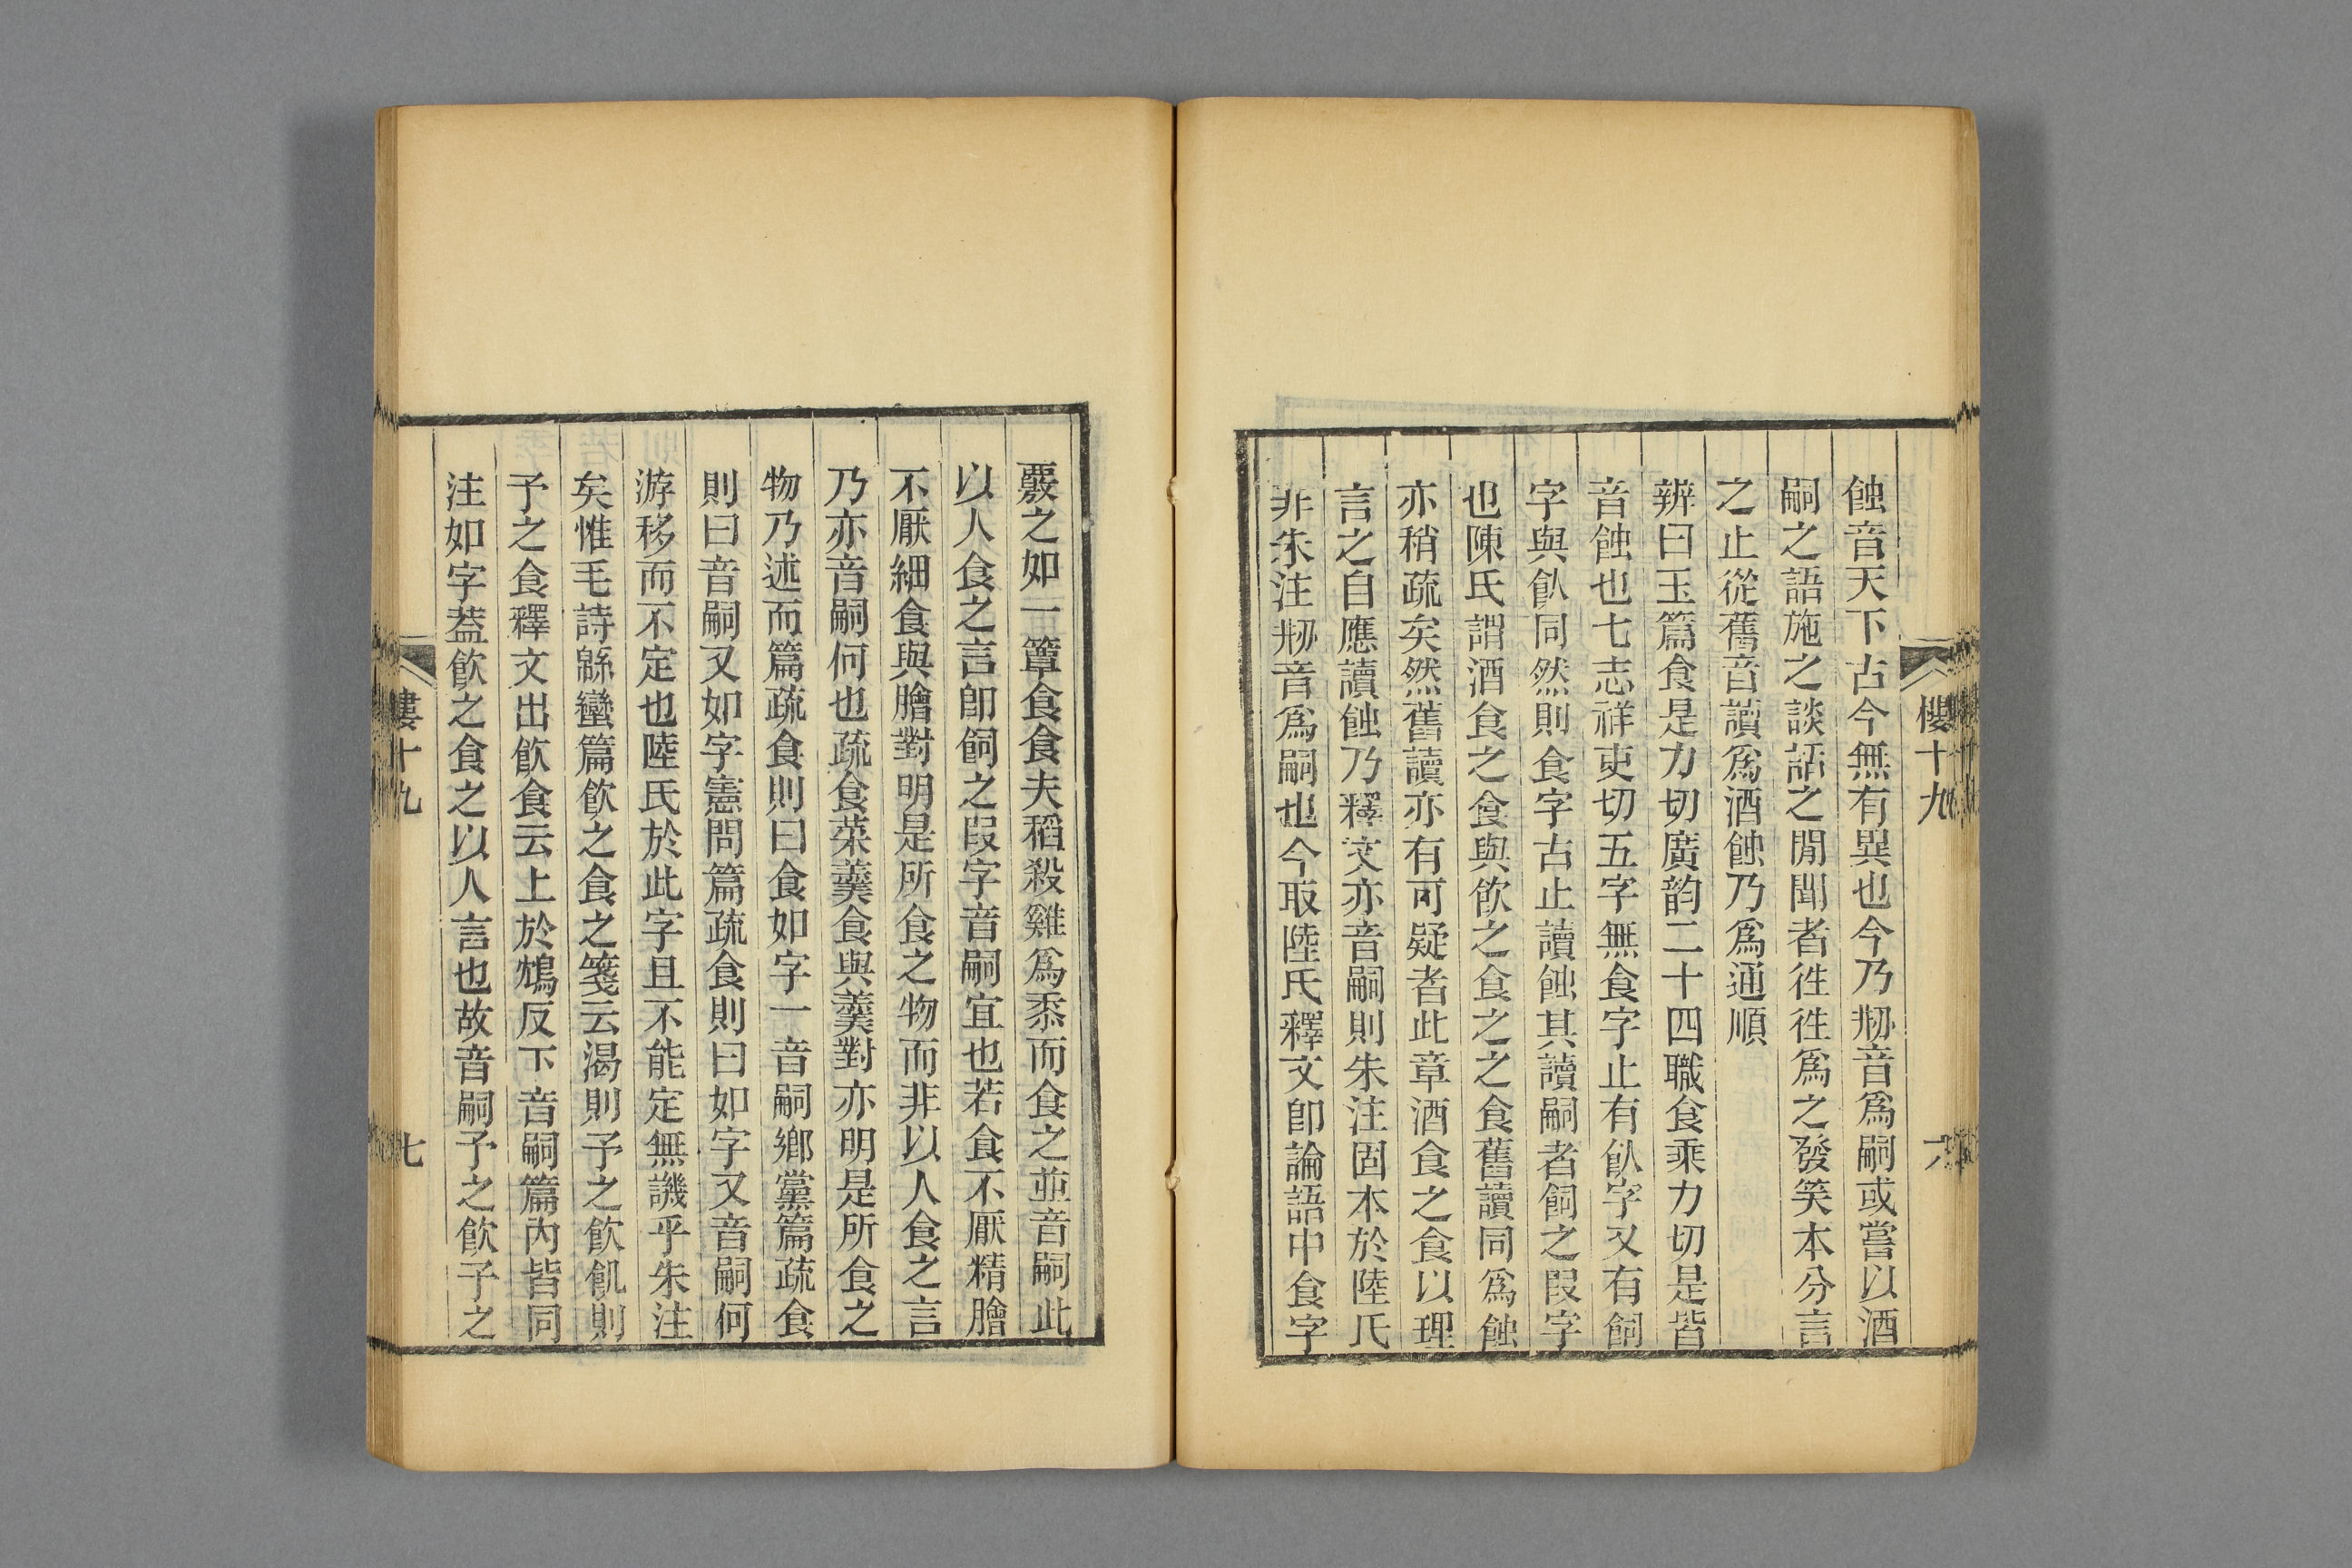 樓十九
六
蝕音天下古今無有異也今乃刱音爲嗣或嘗以酒
嗣之語施之談話之閒聞者徃徃爲之發笑本分言
之止從舊音讀爲酒蝕乃爲通順
辨曰玉篇食是力切廣韵二十四職食乘力切是皆
音蝕也七志祥吏切五字無食字止有飤字又有飼
字與飤同然則食字古止讀蝕其讀嗣者飼之叚字
也陳氏謂酒食之食與飮之食之之食舊讀同爲蝕
亦稍疏矣然舊讀亦有可疑者此章酒食之食以理
言之自應讀蝕乃釋文亦音嗣則朱注固本於陸氏
非朱注刱音爲嗣也今取陸氏釋文卽論語中食字
覈之如一簞食食夫稻殺雞爲黍而食之並音嗣此
以人食之言卽飼之叚字音嗣宜也若食不厭精膾
不厭細食與膾對明是所食之物而非以人食之言
乃亦音嗣何也疏食菜羹食與羹對亦明是所食之
物乃述而篇疏食則曰食如字一音嗣鄕黨篇疏食
則曰音嗣又如字憲問篇疏食則曰如字又音嗣何
游移而不定也陸氏於此字且不能定無譏乎朱注
矣惟毛詩緜蠻篇飮之食之箋云渴則予之飮飢則
予之食釋文出飮食云上於鴆反下音嗣篇內皆同
注如字葢飮之食之以人言也故音嗣予之飮予之
樓十九
七